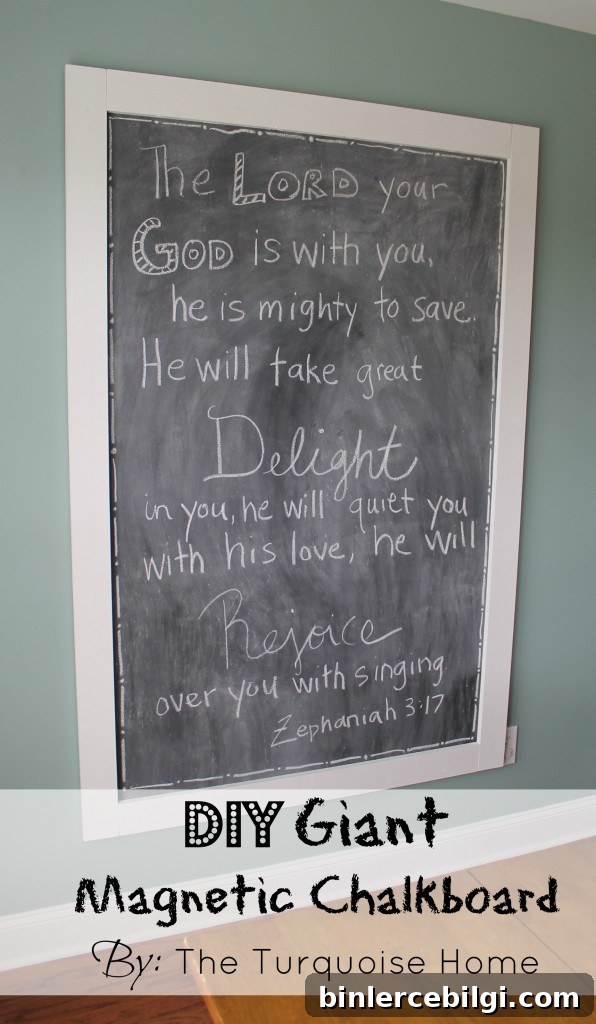 The LORD your
GOD is with you,
he is mighty to save.
He will take great
Delight
in you, he will quiet you
with his love, he will
Rejoice
over you with singing
Zephaniah 3:17
DIY Giant
Magnetic Chalkboard
By: The Turquoise Home
binlercebilgi.com